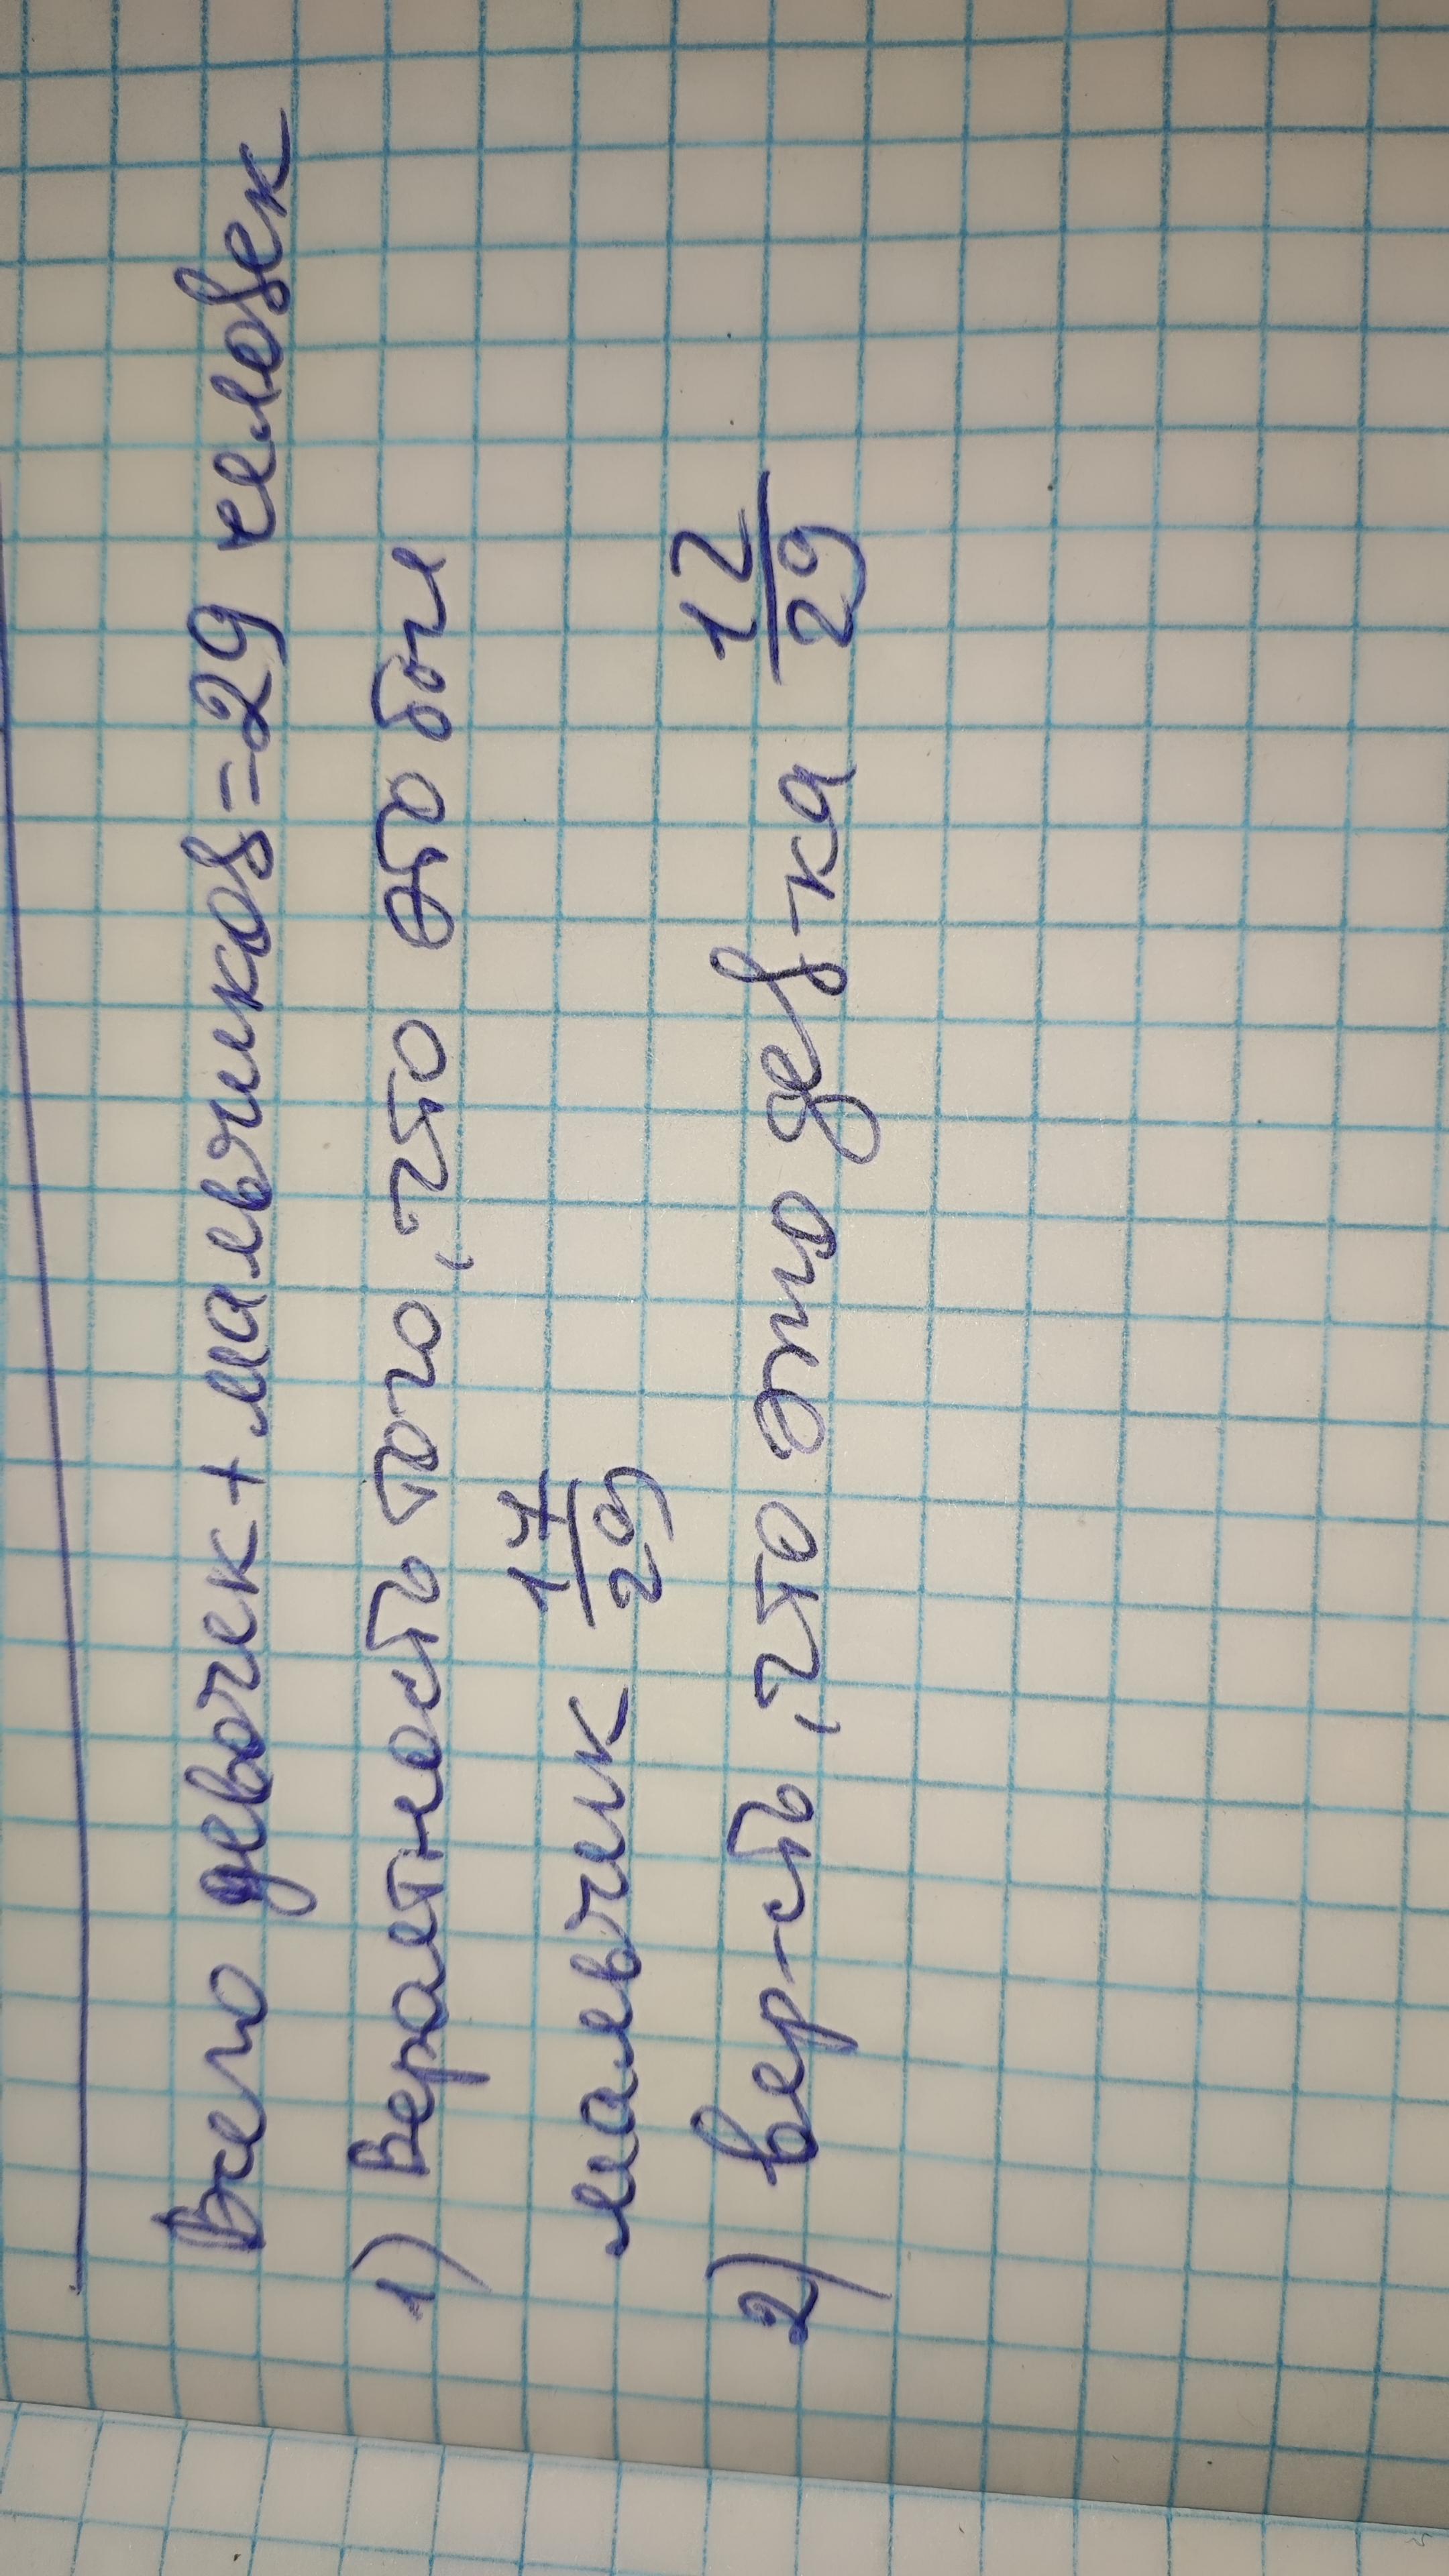 Всего девочек+мальчиков=29 человек
1) Вероятность того, что это был
мальчик 17/29
2) вер-сть, что это дев-ка 12/29